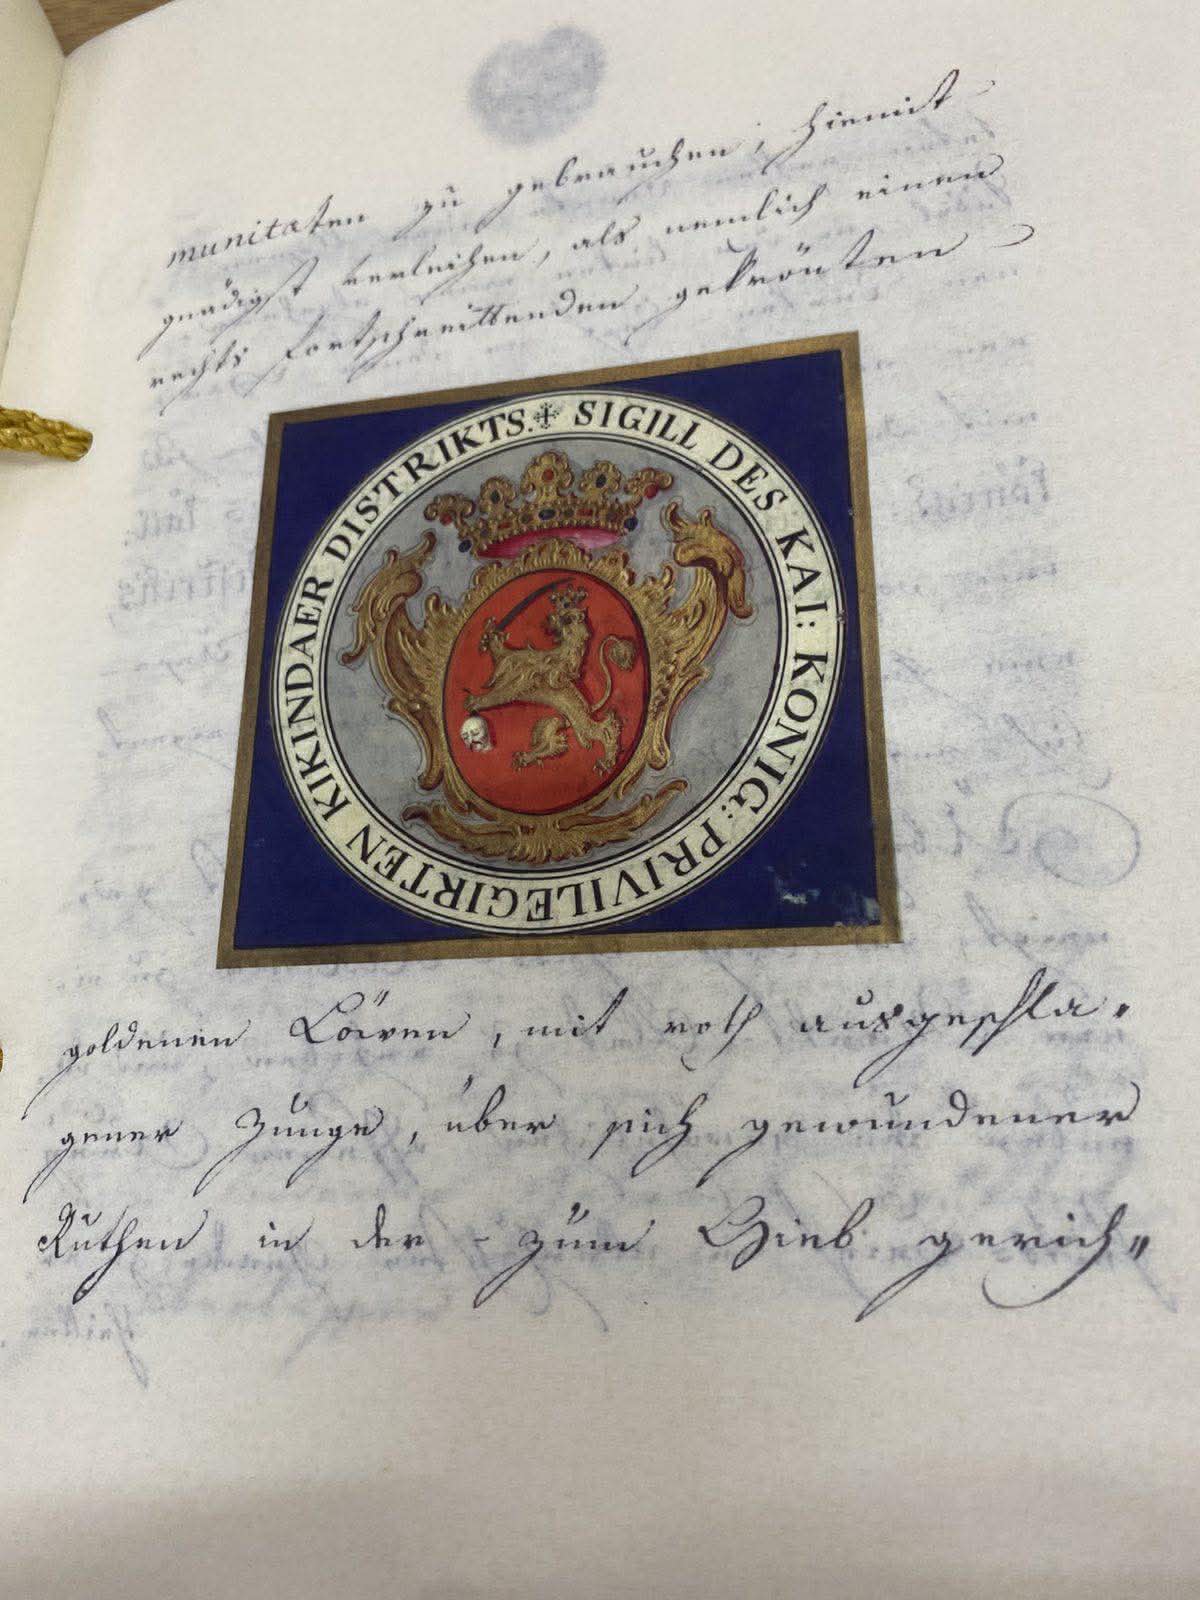 munitaten zu gebrauchen, hiemit
gnädigst verleihen, als nemlich einen
rechts fortschreittenden gekrönten
SIGILL DES KAI: KÖNIG: PRIVILEGIRTEN KIKINDAER DISTRIKTS.
goldenen Löwen, mit roth ausgeschla-
gener Zunge, über sich gewundener
Ruthen in der - zum Hieb gerich„